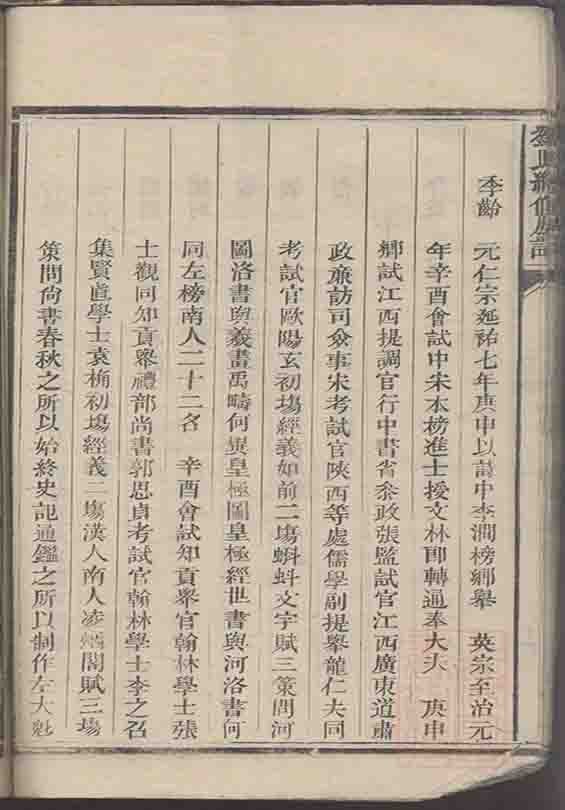 季齡 元仁宗延祐七年庚申以詩中李澗榜鄉舉 英宗至治元
年辛酉會試中宋本榜進士授文林郎轉通奉大夫 庚申
鄉試江西提調官行中書省叅政張監試官江西廣東道肅
政亷訪司僉事宋考試官陝西等處儒學副提舉龍仁夫同
考試官歐陽玄初塲經義如前二塲蝌蚪文字賦三策問河
圖洛書與羲畫禹疇何異皇極圖皇極經世書與河洛書何
同左榜南人二十二名 辛酉會試知貢舉官翰林學士張
士觀同知貢舉禮部尚書郭思貞考試官翰林學士李之召
集賢直學士袁桷初塲經義二塲漢人南人凌烟閣賦三塲
策問尚書春秋之所以始終史記通鑑之所以制作左大魁